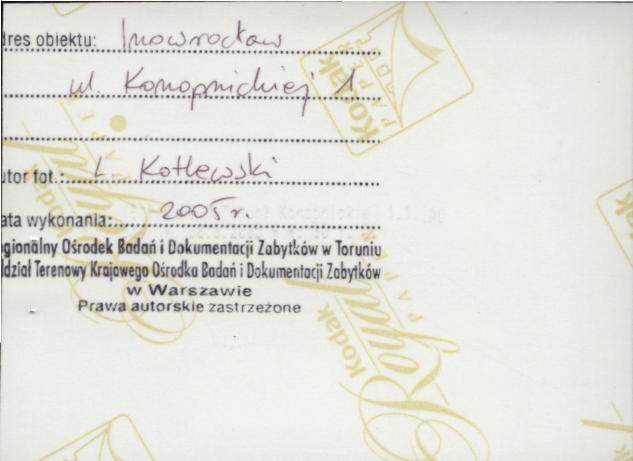 dres obiektu: Inowrocław
ul. Konopnickiej 1
utor fot.: Ł. Kotlewski
ata wykonania: 2005 r.
Konopnickiej 1.1.jpg
gionalny Ośrodek Badań i Dokumentacji Zabytków w Toruniu
dział Terenowy Krajowego Ośrodka Badań i Dokumentacji Zabytków
w Warszawie
Prawa autorskie zastrzeżone
Kodak
PAPER
Kodak
Royal
PAPER
Kodak
Royal
PAPER
Kodak